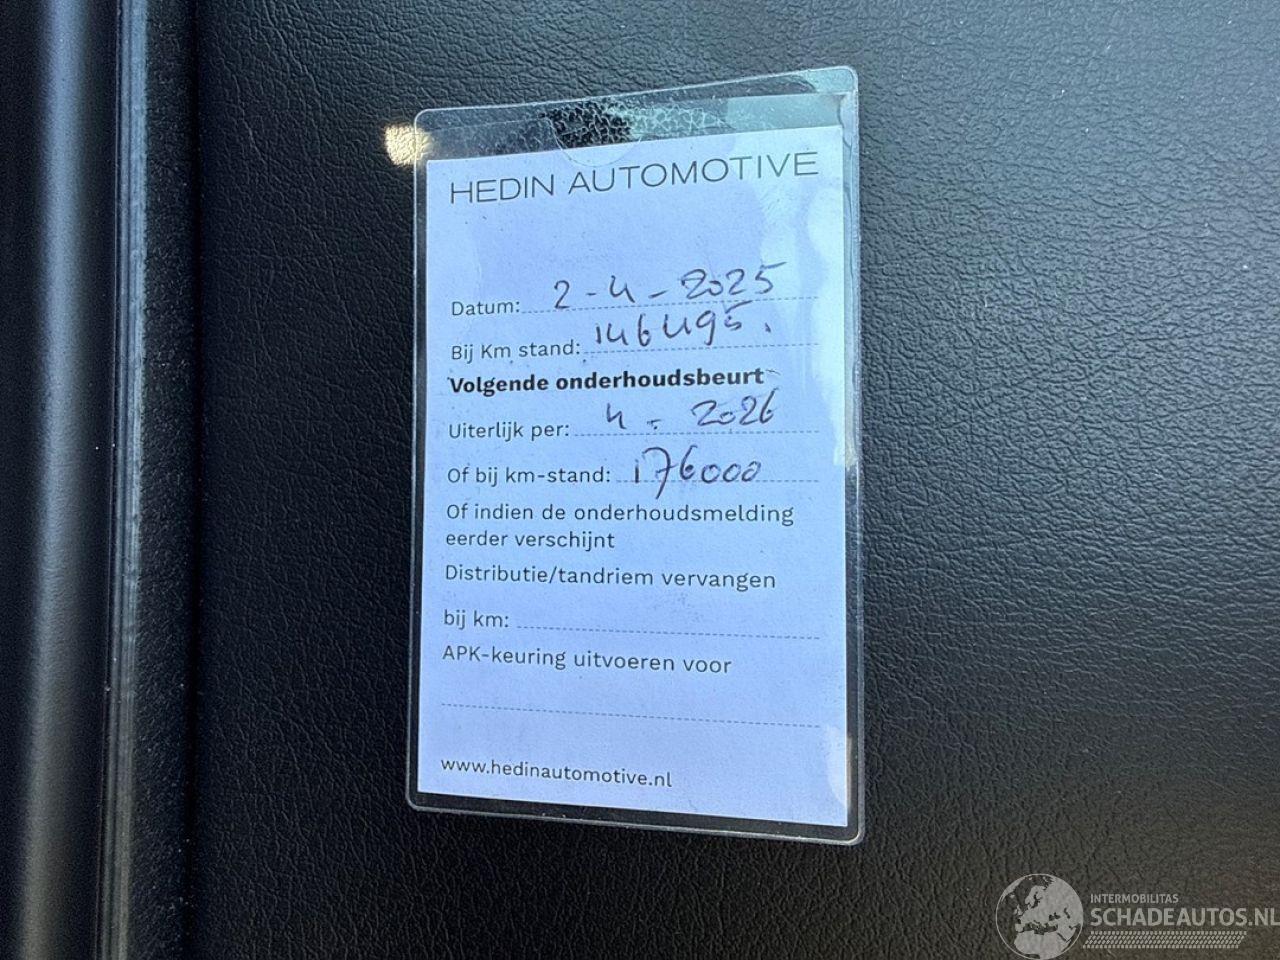 HEDIN AUTOMOTIVE
Datum: 2-4-2025
Bij Km stand: 146495.
Volgende onderhoudsbeurt
Uiterlijk per: 4-2026
Of bij km-stand: 176000
Of indien de onderhoudsmelding
eerder verschijnt
Distributie/tandriem vervangen
bij km:
APK-keuring uitvoeren voor
www.hedinautomotive.nl
INTERMOBILITAS
SCHADEAUTOS.NL